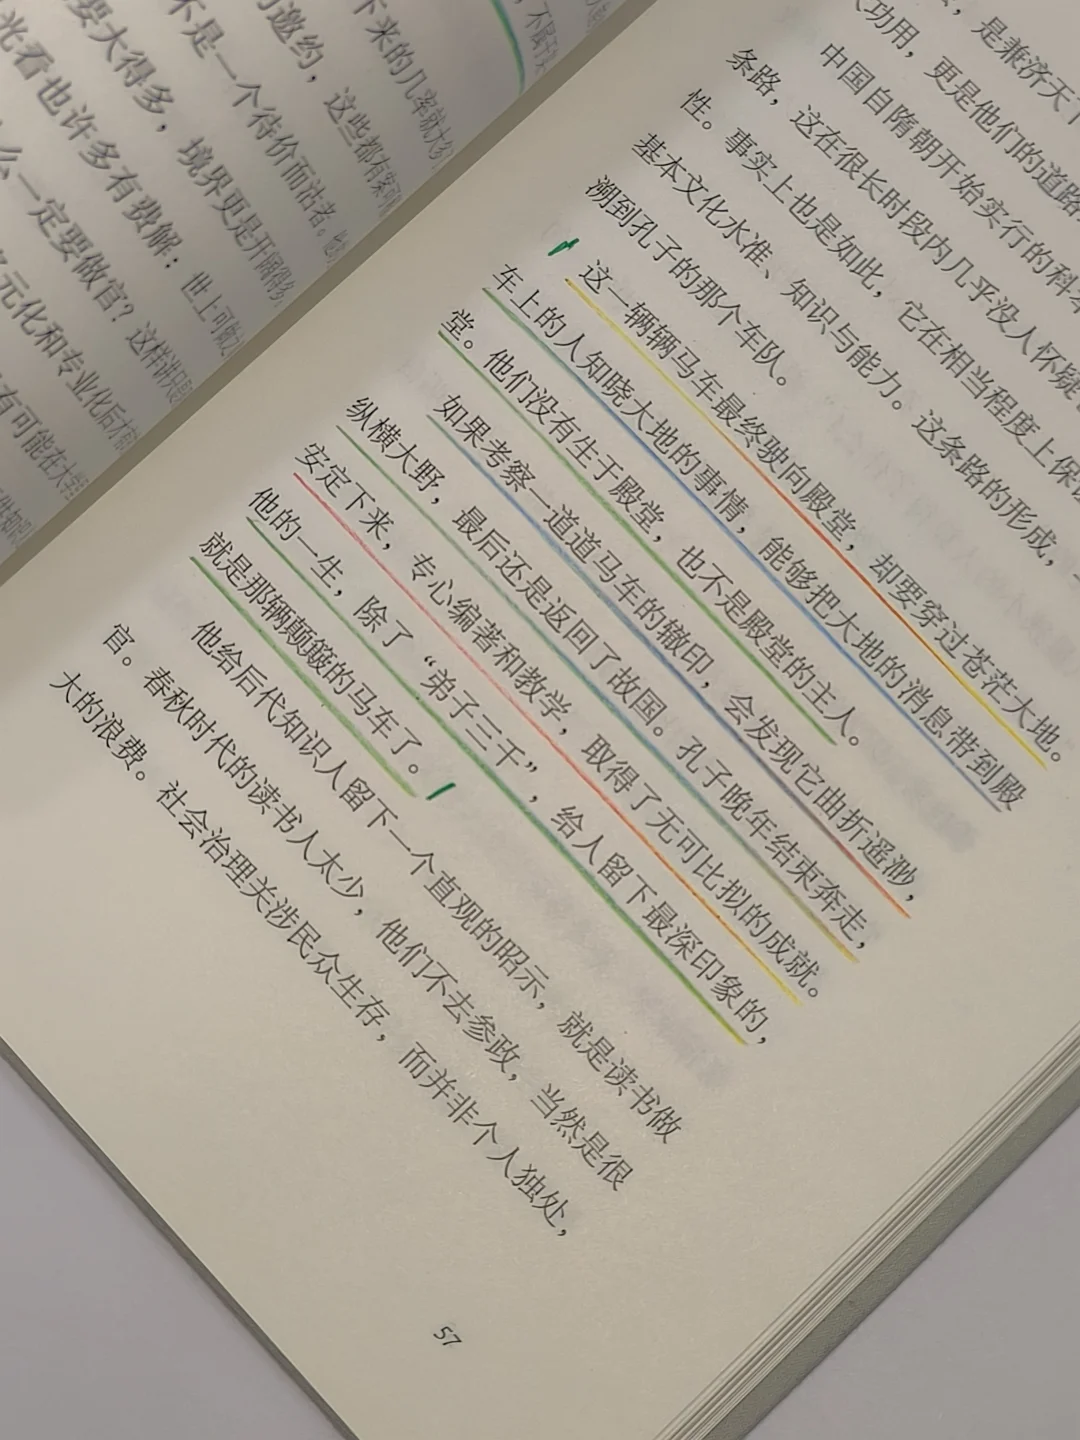 下来的几年就大多
的邀约，这些都有案可
不是一个待价而沽者。
要大得多，境界更是开阔得多
光看也许多有费解：世上可做之
么一定要做官？这样讲只是
多元化和专业化后才
有可能在大
，不属于
，是兼济天下
功用，更是他们的道路
中国自隋朝开始实行的科举
条路，这在很长时段内几乎没人怀疑
性。事实上也是如此，它在相当程度上保证
基本文化水准、知识与能力。这条路的形成，
溯到孔子的那个车队。
这一辆辆马车最终驶向殿堂，却要穿过苍茫大地。
车上的人知晓大地的事情，能够把大地的消息带到殿
堂。他们没有生于殿堂，也不是殿堂的主人。
如果考察一道道马车的辙印，会发现它曲折遥渺，
纵横大野，最后还是返回了故国。孔子晚年结束奔走，
安定下来，专心编著和教学，取得了无可比拟的成就。
他的一生，除了“弟子三千”，给人留下最深印象的，
就是那辆颠簸的马车了。
他给后代知识人留下一个直观的昭示，就是读书做
官。春秋时代的读书人太少，他们不去参政，当然是很
大的浪费。社会治理关涉民众生存，而并非个人独处，
57